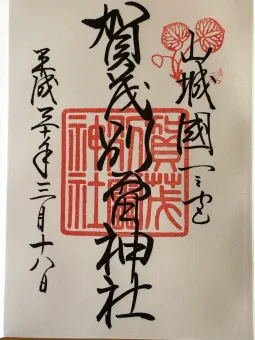 山城國一之宮
賀茂別雷神社
賀茂別雷神社
平成三十年三月十八日